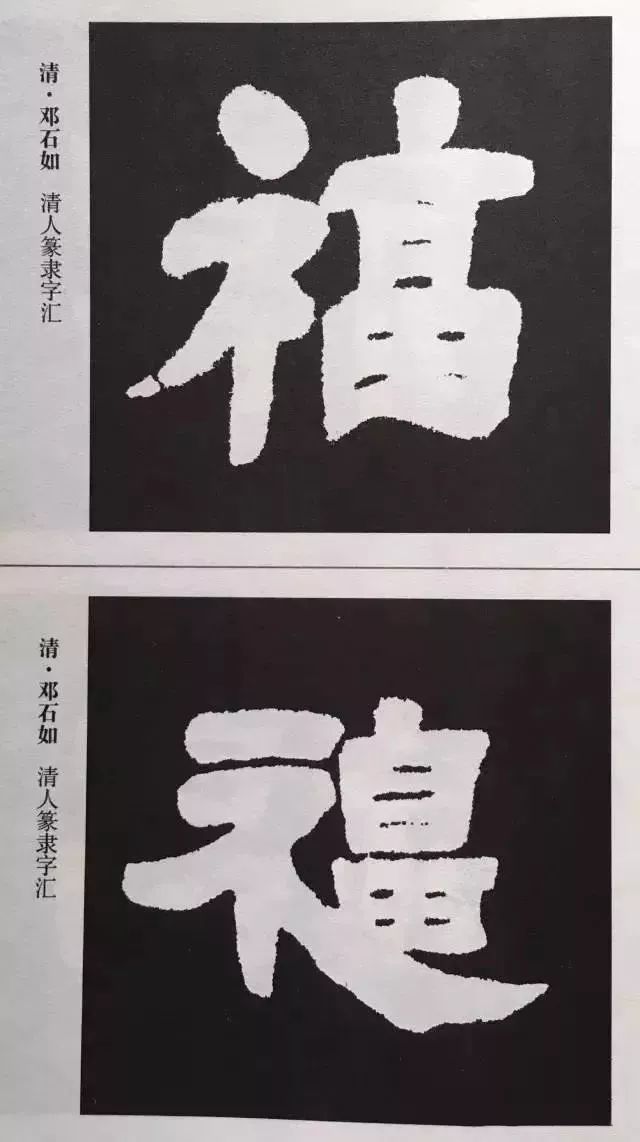 清·邓石如 清人篆隶字汇
福
清·邓石如 清人篆隶字汇
福